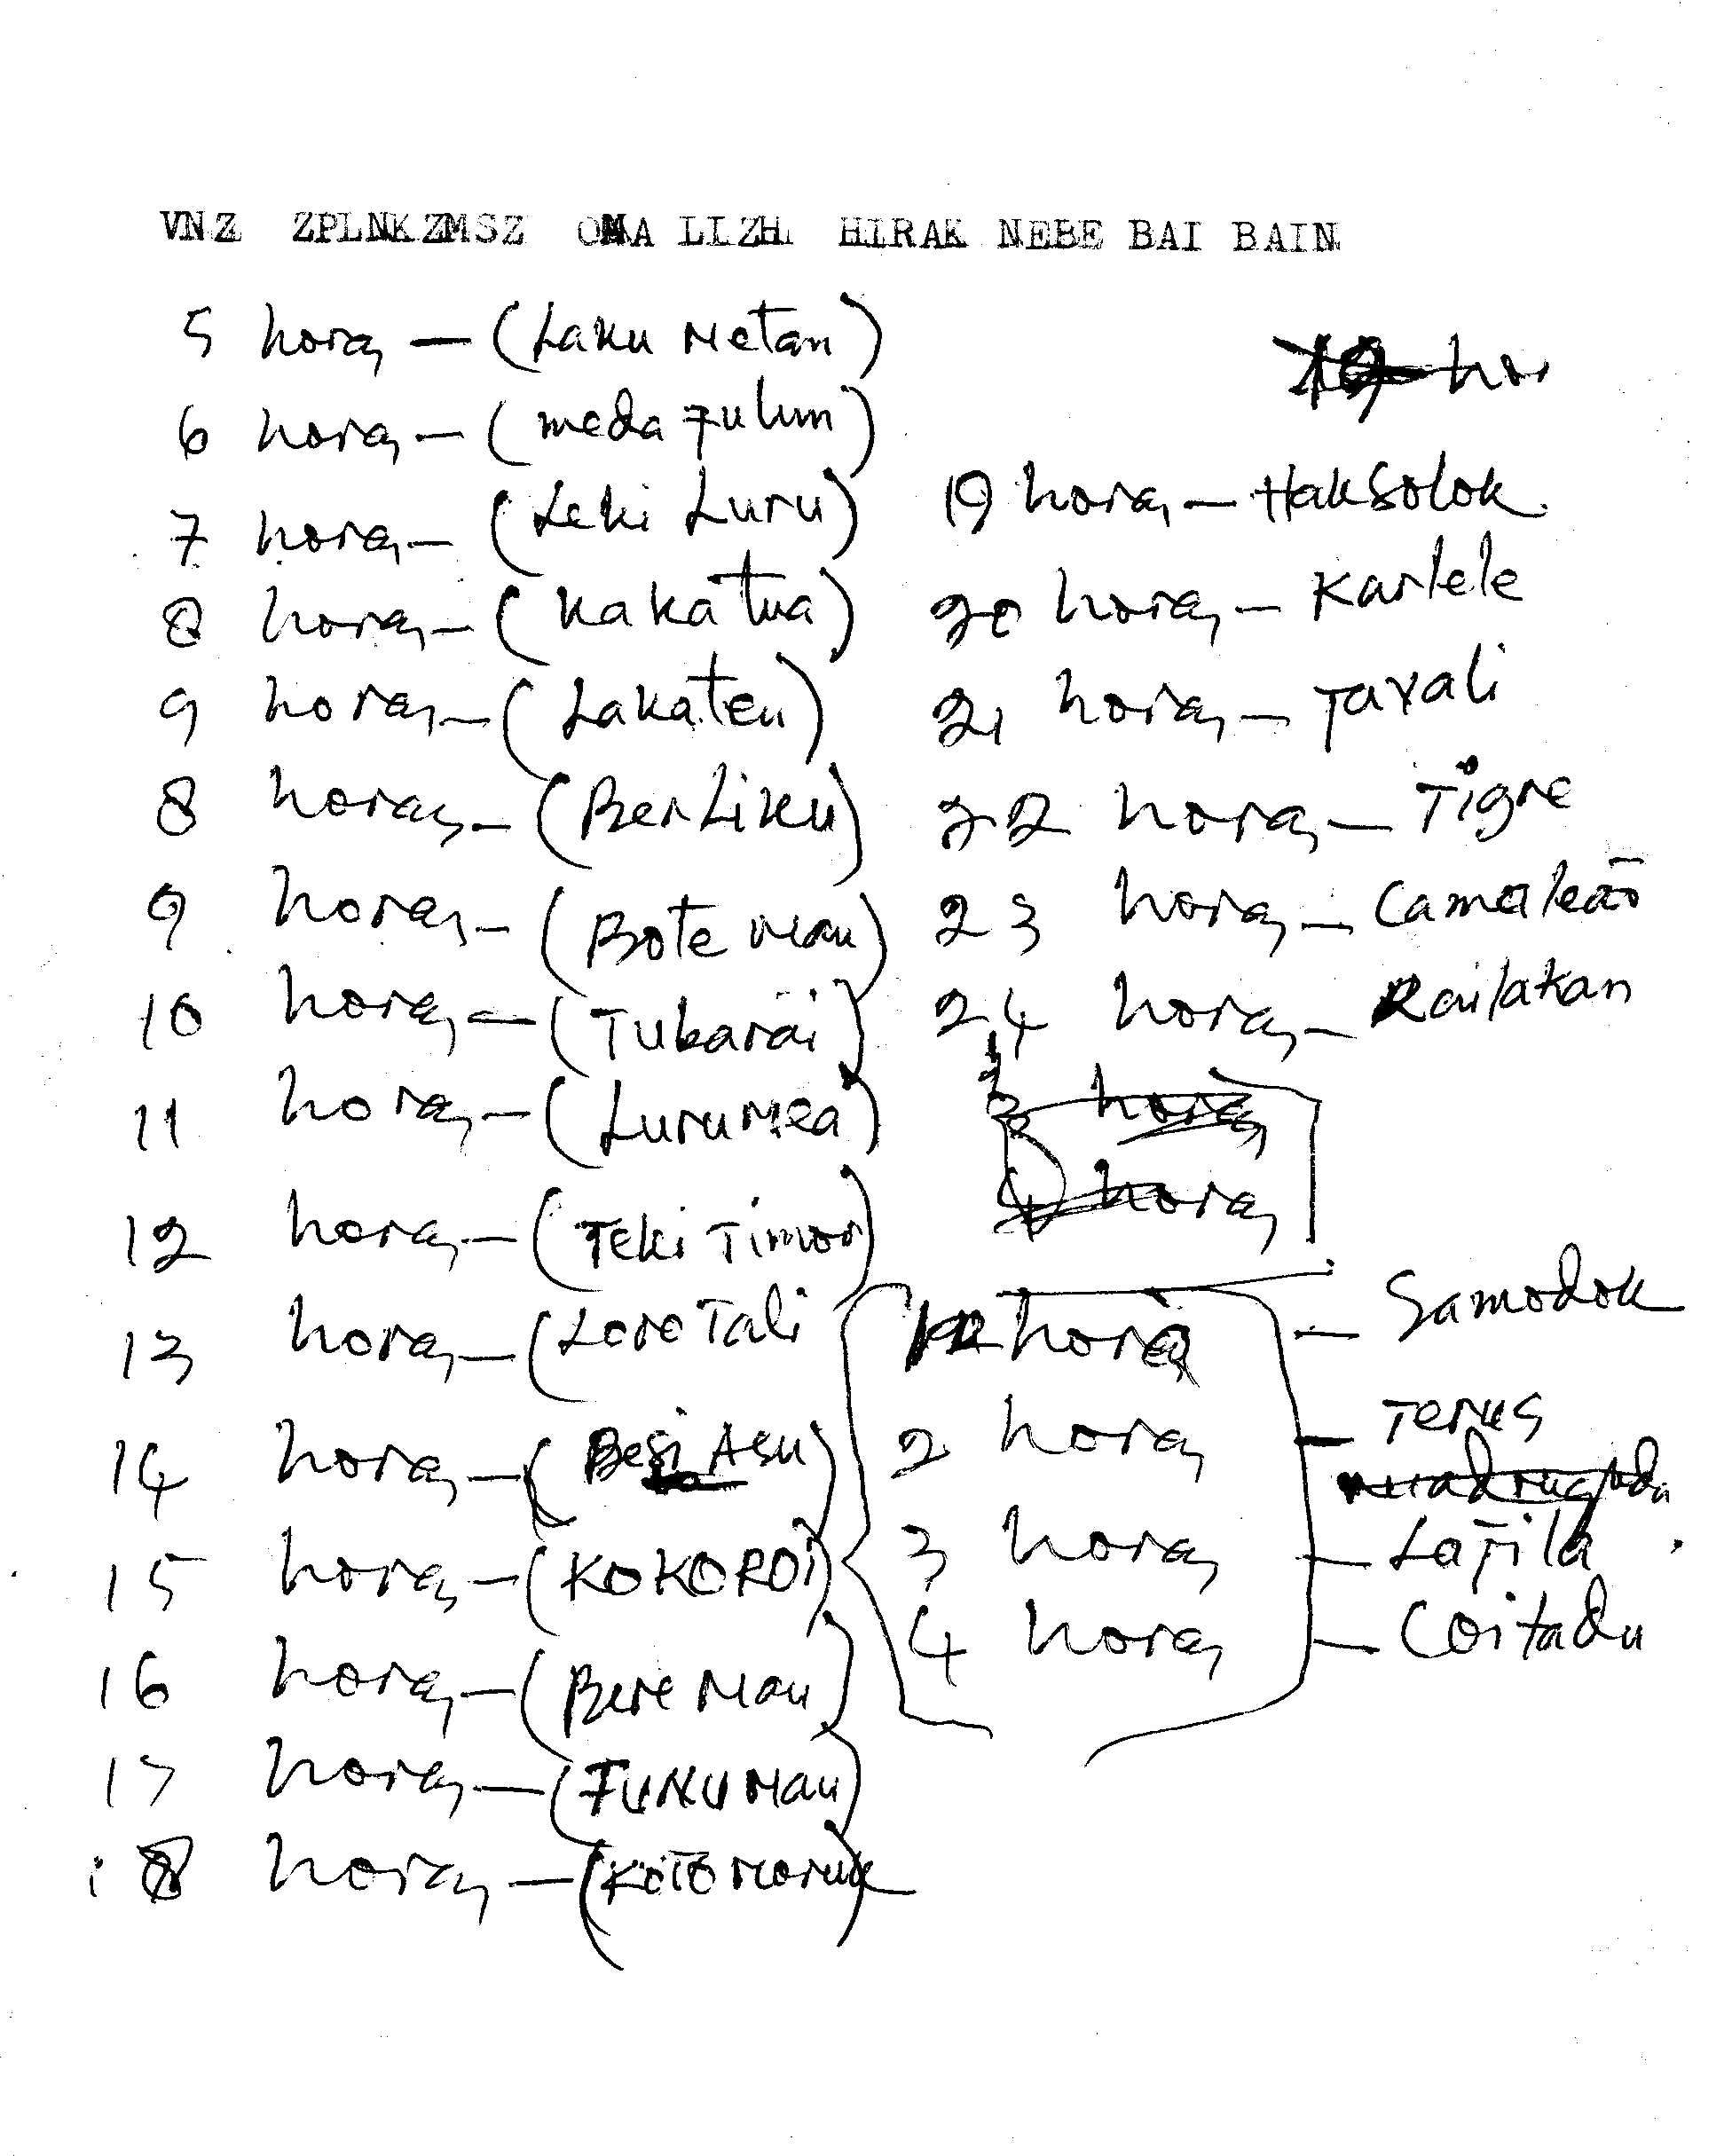 VNZ ZPLNKZMSZ OMA LIZH HIRAK NEBE BAI BAIN
5 horas — (Laku Metan)
6 horas — (meda Fulun)
7 horas — (Leki Luru)
8 horas — (Kakatua)
9 horas — (Lakateu)
8 horas — (Ber Liku)
9 horas — (Bote Mau)
10 horas — (Tubarãi)
11 horas — (Luru Mea)
12 horas — (Teki Timor)
13 horas — (Lere Tali
14 horas — (Besi Asu)
15 horas — (KOKOROI)
16 horas — (Bere Mau)
17 horas — (FUKU Mau)
18 horas — (KOTO Moruk)
19 hor
19 horas — Haksolok
20 horas — Karlele
21 horas — Taxali
22 horas — Tigre
23 horas — Camaleão
24 horas — Railakan
3 horas
4 horas
1 hora — Samodok
2 horas — Terus
madrugada
3 horas — Lafila
4 horas — Coitadu